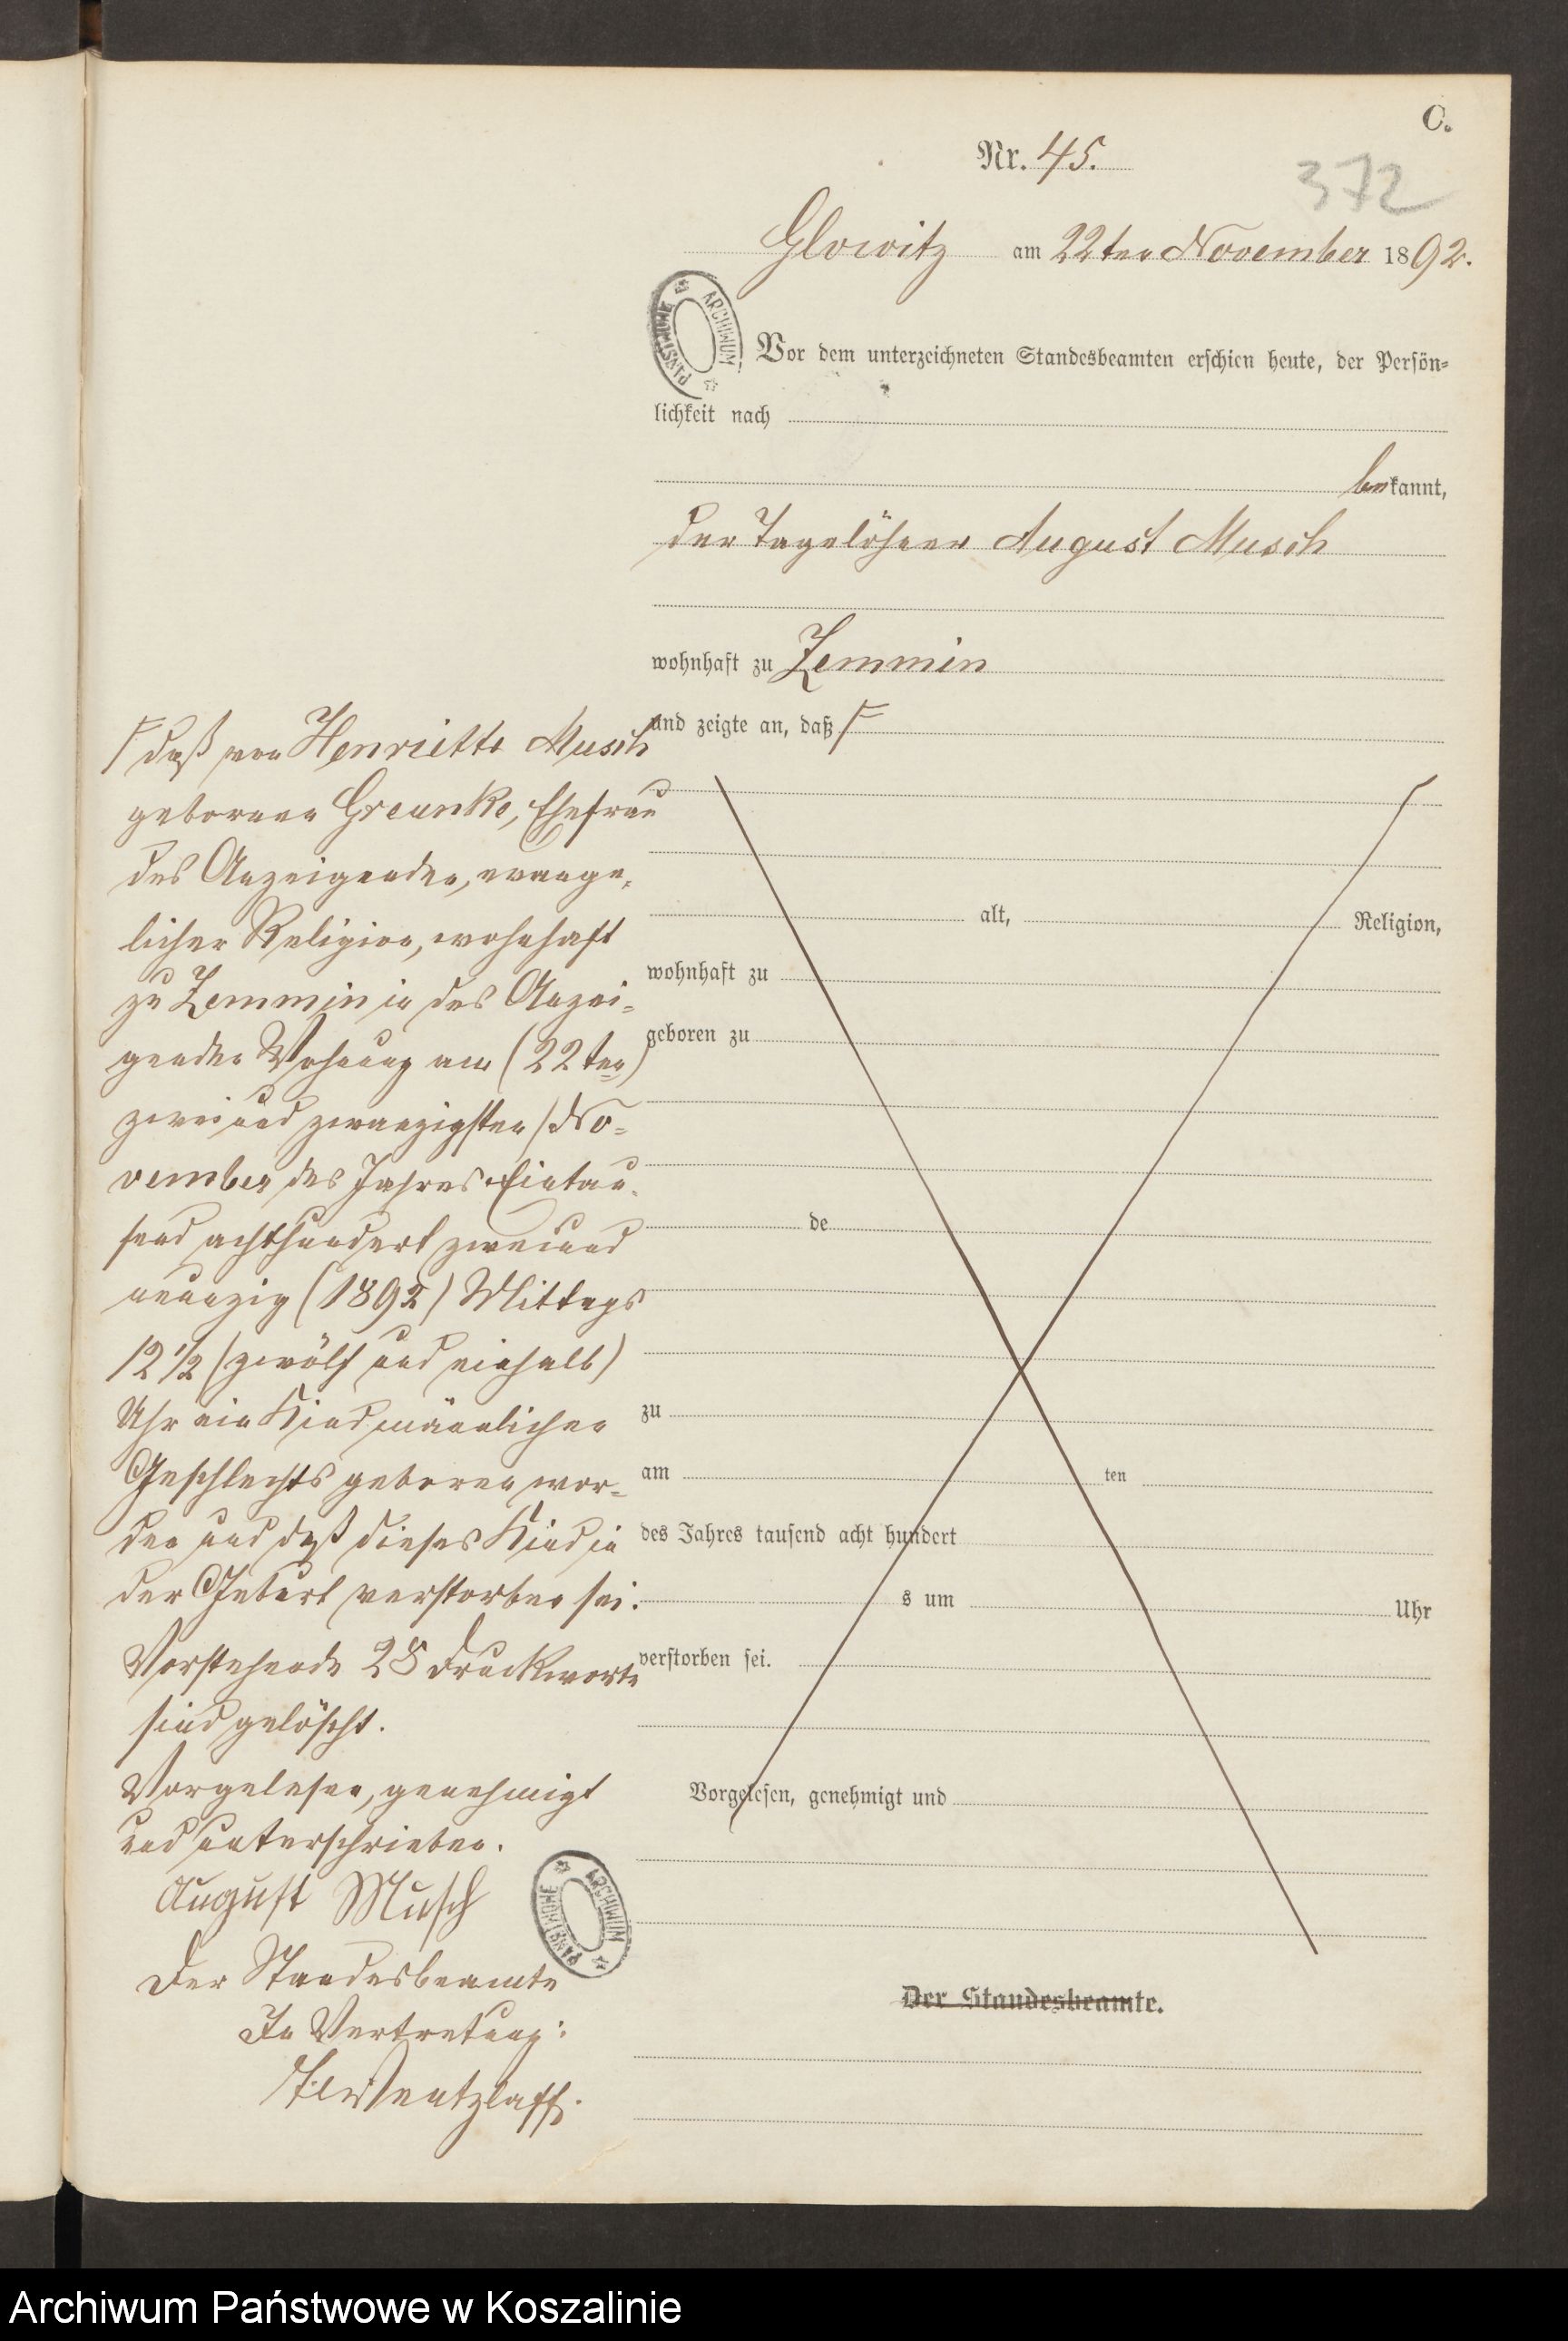 C.
Nr. 45.
372
Glowitz am 22ten November 1892.
ARCHIWUM PAŃSTWOWE
Vor dem unterzeichneten Standesbeamten erschien heute, der Persön=
lichkeit nach
bekannt,
der Tagelöhner August Musch
wohnhaft zu Zemmin
und zeigte an, daß
alt, Religion,
wohnhaft zu
geboren zu
de
zu
am ten
des Jahres tausend acht hundert
s um Uhr
verstorben sei.
Vorgelesen, genehmigt und
Der Standesbeamte.
daß von Henriette Musch
geborenen Greunke, Ehefrau
des Anzeigenden, evange-
licher Religion, wohnhaft
zu Zemmin in des Anzei=
genden Wohnung am (22ten)
zweiundzwanzigsten No=
vember des Jahres Eintau-
send achthundert zweiund
neunzig (1892) Mittags
12 1/2 (zwölf und einhalb)
Uhr ein Kind männlichen
Geschlechts geboren wor=
den und daß dieses Kind in
der Geburt verstorben sei.
Vorstehende 28 Druckworte
sind gelöscht.
Vorgelesen, genehmigt
und unterschrieben.
August Musch
ARCHIWUM PAŃSTWOWE
Der Standesbeamte
In Vertretung:
Wentzlaff.
Archiwum Państwowe w Koszalinie